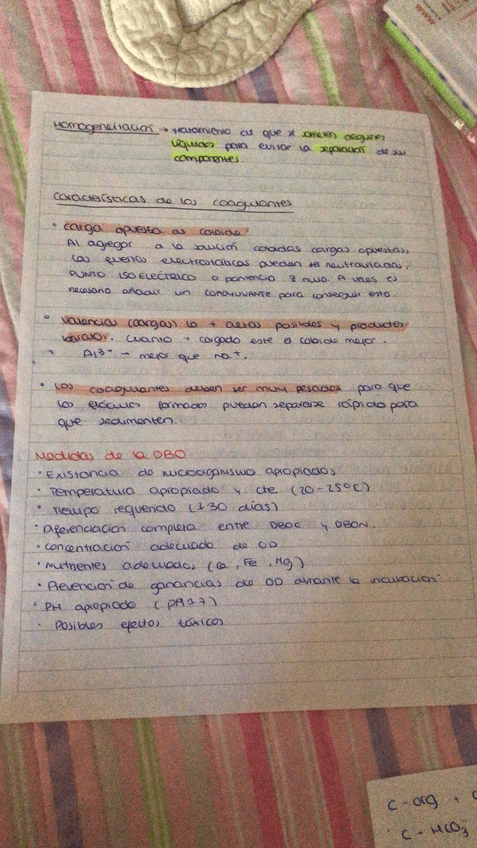 Homogeneización → tratamiento al que se someten algunos
líquidos para evitar la separación de sus
componentes.
Características de los coagulantes
· carga opuesta al coloide:
Al agregar a la solución coloidal cargas opuestas,
las fuerzas electrostáticas pueden ser neutralizadas.
PUNTO ISOELÉCTRICO o potencial Z nulo. A veces es
necesario añadir un coadyuvante para conseguir esto.
· Valencias (cargas) lo + altas posibles y productos
baratos. Cuanto + cargado este el coloide mejor.
Al3+ → mejor que Na+.
· Los coagulantes deben ser muy pesados para que
los flóculos formados puedan separarse rápido para
que sedimenten.
Medidas de la DBO
· Existencia de microorganismo apropiados
· Temperatura apropiado y cte (20-25ºC)
· Tiempo requerido (±30 días)
· Diferenciación completa entre DBOC y DBON.
· Concentración adecuada de OD
· Nutrientes adecuados (Ca, Fe, Mg)
· Prevención de ganancias de OD durante la incubación
· PH apropiado (pH≈7)
· Posibles efectos tóxicos
C-org +
C-HCO3-